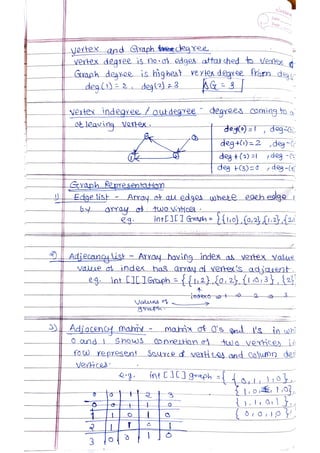 vertex and Graph degree
vertex degree is no. of edges attatched to vertex
Graph degree is highest vertex degree from
deg(1) = 2. deg(2) = 3 ΔG = 3
vertex indegree / outdegree - degrees coming to
or leaving vertex.
deg+(1) = 2
deg+(2) = 1
deg+(3) = 0
Graph Representation
1) Edge list - Array of all edges where each edge
by array of two vertices.
eg. int[][] Graph = {{1,0}, {0,2}, {1,2}, {2
2) Adjecancy list - Array having index as vertex value
value of index has array of vertex's adjacent.
eg. int [][] Graph = {{1,2}, {0,2}, {1,0,3}, {2}
index → 0 1 2 3
values of
graph
3) Adjacency matrix - matrix of 0's and 1's in
0 and 1 shows connection of two vertices
row represent source of vertices and column
vertices.
e.g. int [][] graph = { {0,1,1,0},
{1,0,1,0},
{1,1,0,1}
{0,0,1,0}
0 1 2 3
0 0 1 1 0
1 1 0 1 0
2 1 1 0 1
3 0 0 1 0